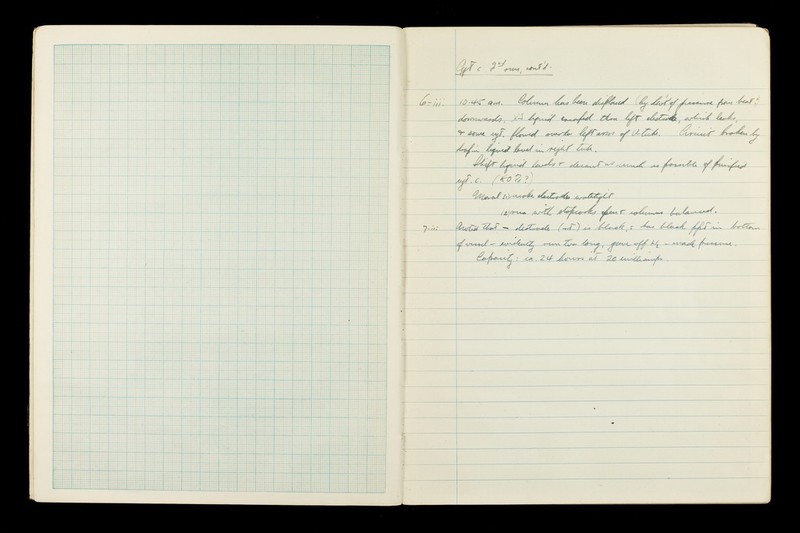 Cyt c 2nd run, cont'd.
6-iii 10.45 am. Column has been displaced (by devt of pressure from heat?)
downwards, liquid escaped thru left electrode, which leaks,
& some cyt. flowed over to left arm of U-tube. Circuit broken by
drop in liquid level in right tube.
Shift liquid levels & decant as much as possible of purified
cyt. c. (80%?)
Moral (1) make electrodes watertight
(2) run with stopcocks open & columns balanced.
7-iii Noted that - electrode (left) is black, & has black ppt in bottom
of vessel - evidently run too long, gave off H2 & made pressure.
Capacity: ca. 24 hours at 20 milliamps